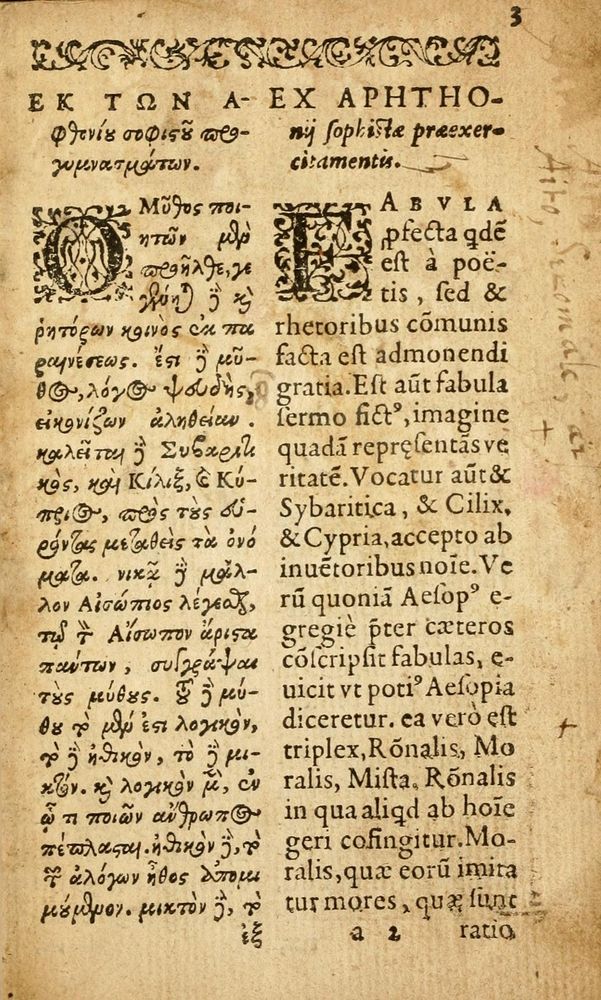 3
ΕΚ ΤΩΝ Α-
φθονίου σοφιστοῦ προ-
γυμνατμάτων.
Ὁ Μῦθος ποι-
ητῶν μὲν
προῆλθε, γε
γένηται δὲ καὶ
ῥητόρων κοινὸς ἐκ πα
ραινέσεως. ἔστι δὲ μῦ-
θος, λόγος ψευδὴς,
εἰκονίζων ἀλήθειαν.
καλεῖται δὲ Συβαριτι
κὸς, καὶ Κίλιξ, & Κύ-
πριος, πρὸς τοὺς εὑ-
ρόντας μεταθεὶς τὰ ὀνό
ματα. νικᾷ δὲ μᾶλ-
λον Αἰσώπιος λέγεσθαι,
τῷ τὸν Αἴσωπον ἄριστα
πάντων, συγγράψαι
τοὺς μύθους. τοῦ δὲ μύ-
θου τὸ μὲν ἐστι λογικὸν,
τὸ δὲ ἠθικὸν, τὸ δὲ μι-
κτόν. καὶ λογικὸν μὲν, ἐν
ᾧ τι ποιῶν ἄνθρωπος
πέπλασται. ἠθικὸν δὲ, τὸ
τῶν ἀλόγων ἦθος ἀπομι
μούμενον. μικτὸν δὲ, τὸ
ἐξ
EX APHTHO-
nij sophistæ præexer-
citamentis.
FABVLA
ꝓfecta qdē
est à poë-
tis, sed &
rhetoribus cōmunis
facta est admonendi
gratia. Est aūt fabula
sermo fictꝰ, imagine
quadā repręsentās ve
ritatē. Vocatur aūt &
Sybaritica, & Cilix,
& Cypria, accepto ab
inuētoribus noīe. Ve
rū quoniā Aesopꝰ e-
gregiè p̄ter cæteros
cōscripsit fabulas, e-
uicit vt potiꝰ Aesopia
diceretur. ea verò est
triplex, Rōnalis, Mo
ralis, Mista. Rōnalis
in qua aliqd ab hoīe
geri cōfingitur. Mo-
ralis, quæ eorū imita
tur mores, quę sunt
a 2 ratio